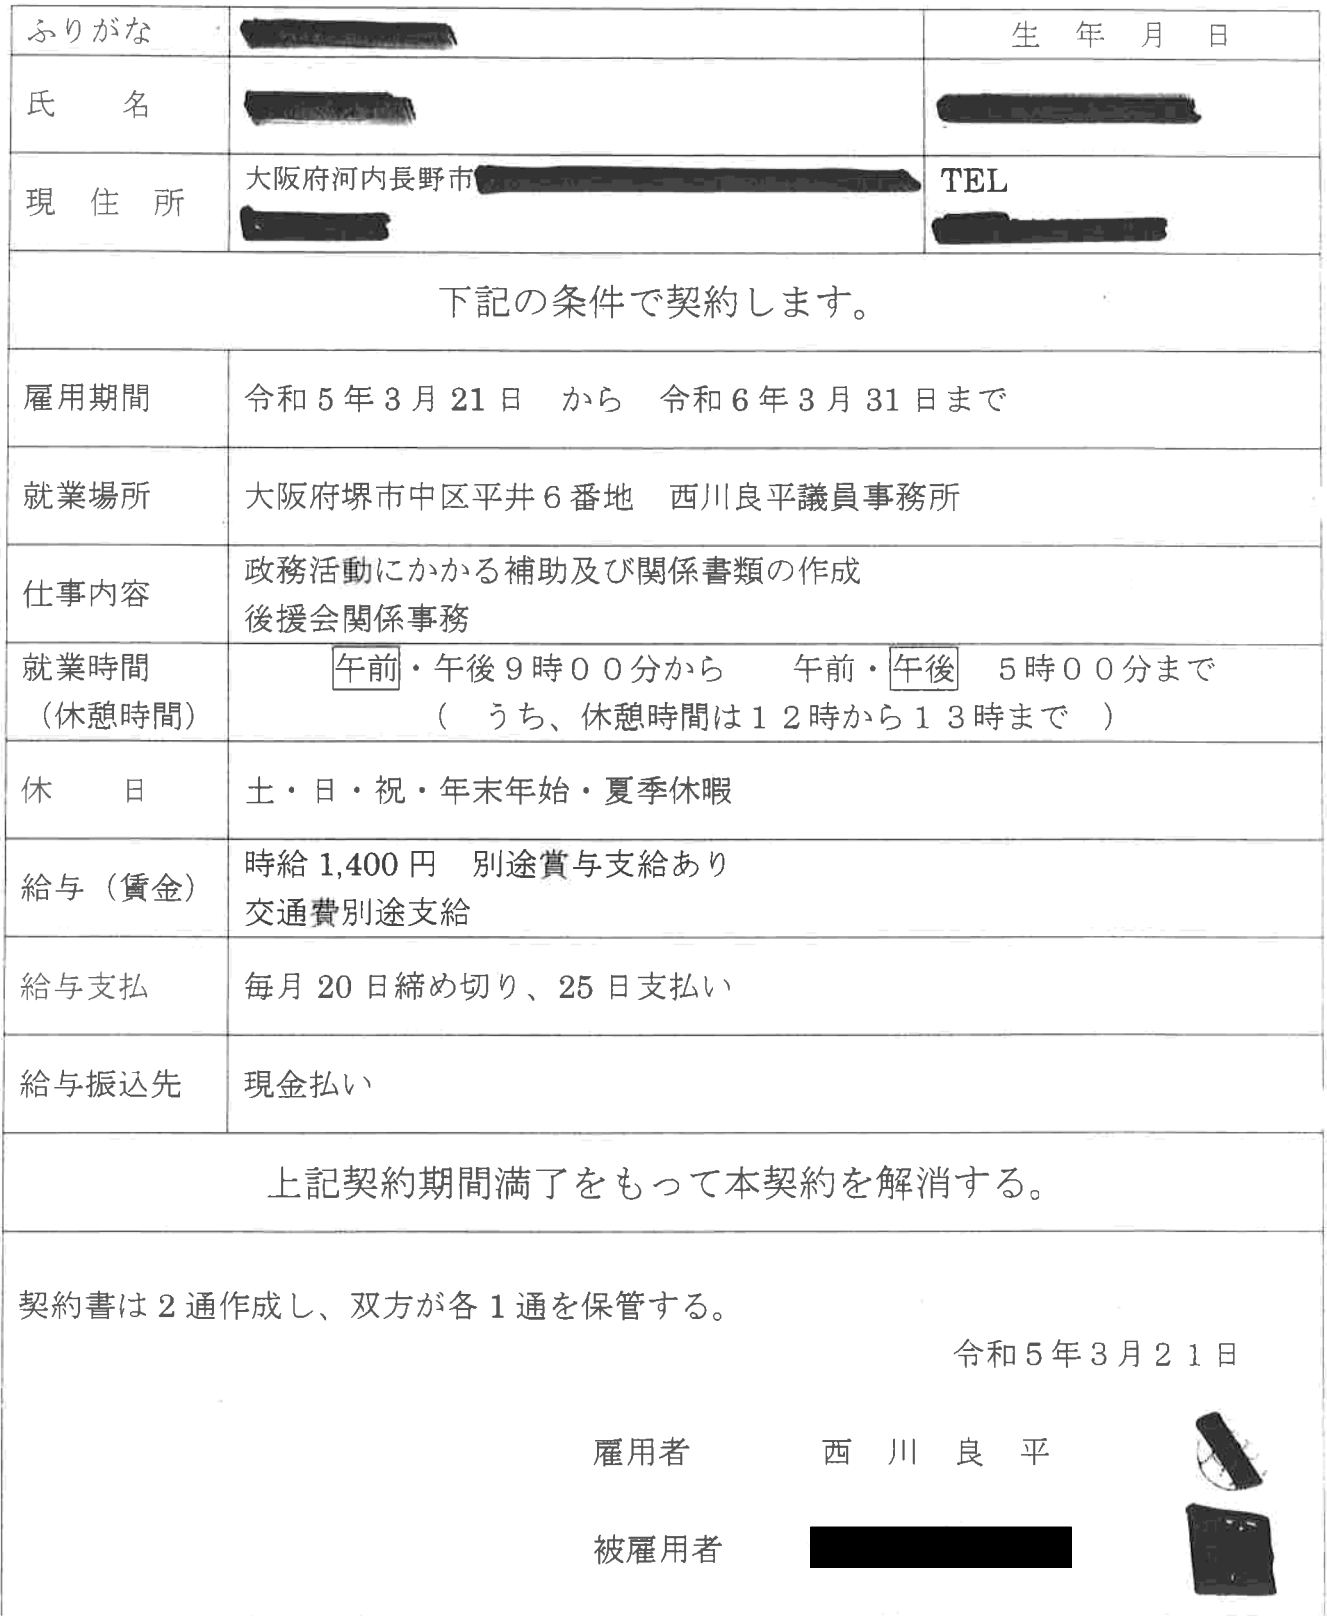 ふりがな
生　年　月　日
氏　　名
現　住　所
大阪府河内長野市
TEL
下記の条件で契約します。
雇用期間
令和5年3月21日　から　令和6年3月31日まで
就業場所
大阪府堺市中区平井６番地　西川良平議員事務所
仕事内容
政務活動にかかる補助及び関係書類の作成
後援会関係事務
就業時間
（休憩時間）
午前・午後９時００分から　　午前・午後　５時００分まで
（　うち、休憩時間は１２時から１３時まで　）
休　　日
土・日・祝・年末年始・夏季休暇
給与（賃金）
時給 1,400 円　別途賞与支給あり
交通費別途支給
給与支払
毎月 20 日締め切り、25 日支払い
給与振込先
現金払い
上記契約期間満了をもって本契約を解消する。
契約書は 2 通作成し、双方が各 1 通を保管する。
令和５年３月２１日
雇用者　　　　西　川　良　平
被雇用者